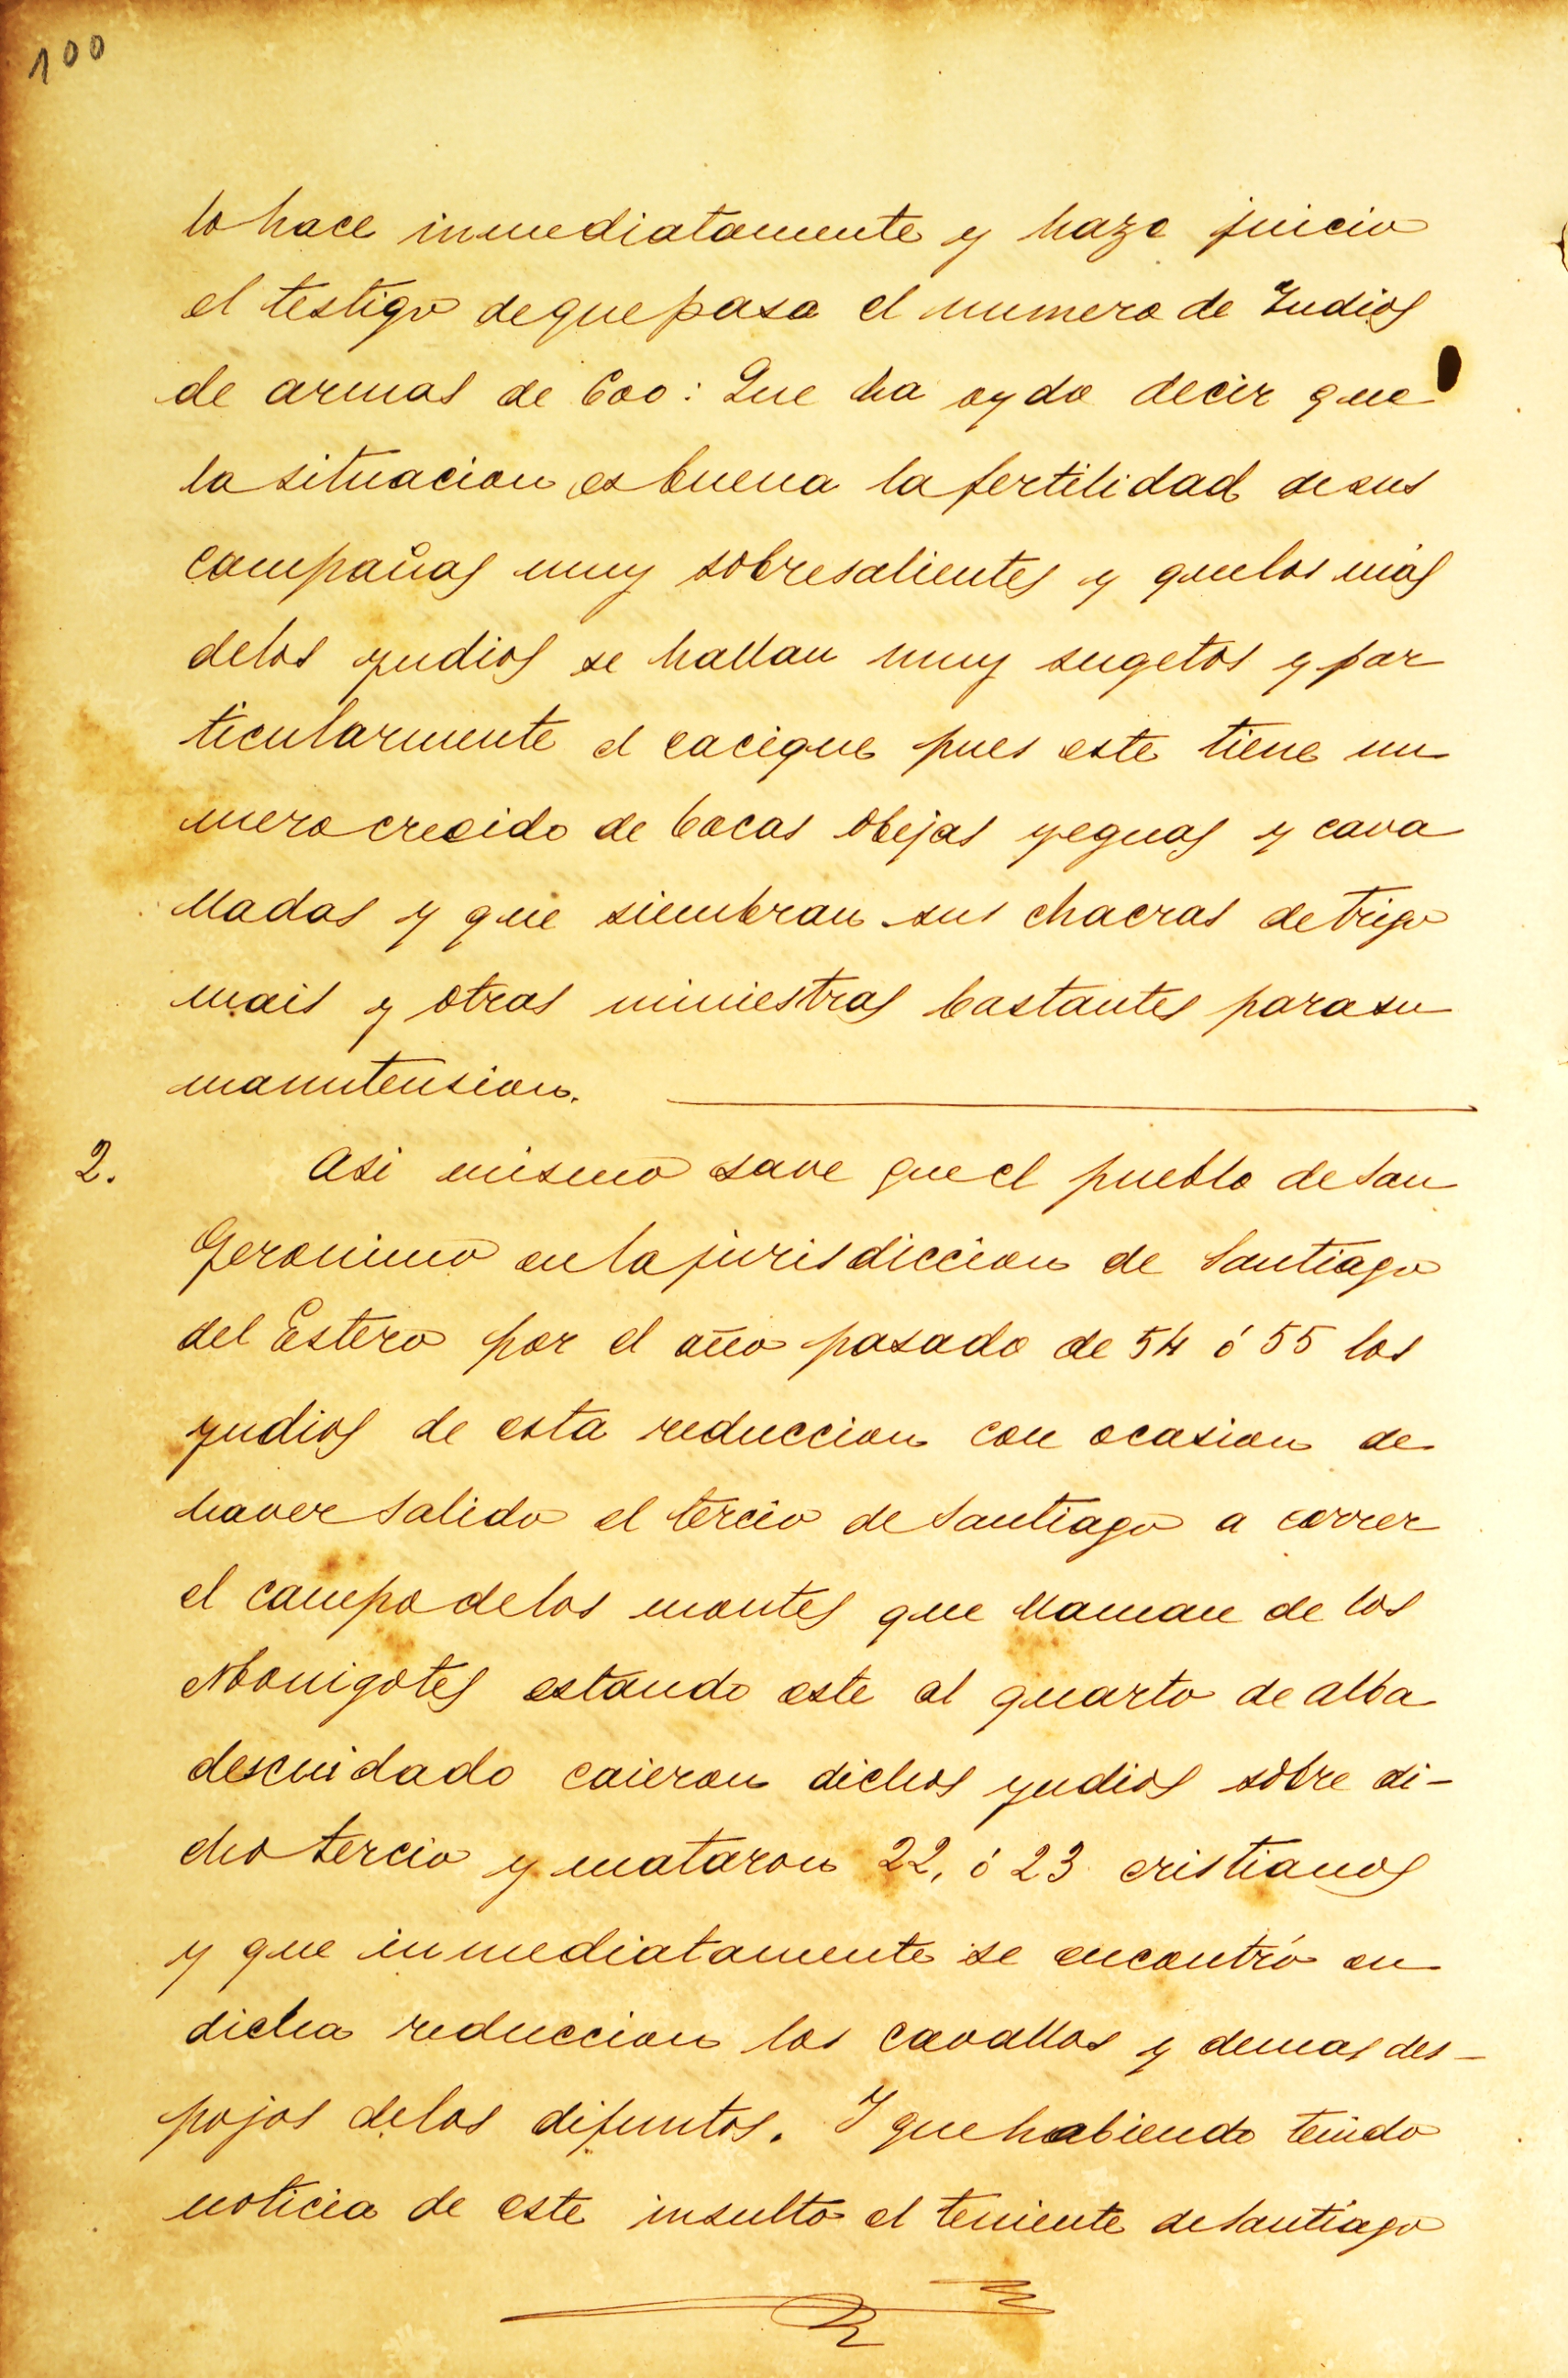 100
lo hace inmediatamente y haze juicio
el testigo deque pasa el numero de Indios
de armas de 600: Que ha oydo decir que
la situacion es buena la fertilidad de sus
campañas muy sobresalientes y que los más
delos yndios se hallan muy sugetos y par
ticularmente el cacique pues este tiene nu
mero crecido de bacas obejas yeguas y cava
lladas y que siembran sus chacras de trigo
mais y otras miniestras bastantes para su
manutension.
2. Asi mismo save que el pueblo de San
Geronimo en la jurisdiccion de Santiago
del Estero por el año pasado de 54 ó 55 los
yndios de esta reduccion con ocasion de
haver salido el tercio de Santiago a correr
el campo delos montes que llaman de los
Monigotes estando este al quarto de alba
descuidado caieron dichos yndios sobre di-
cho tercio y mataron 22, ó 23 cristianos
y que inmediatamente se encontró en
dicha reduccion los cavallos y demas des-
pojos delos difuntos. I que habiendo tenido
noticia de este insulto el teniente de Santiago